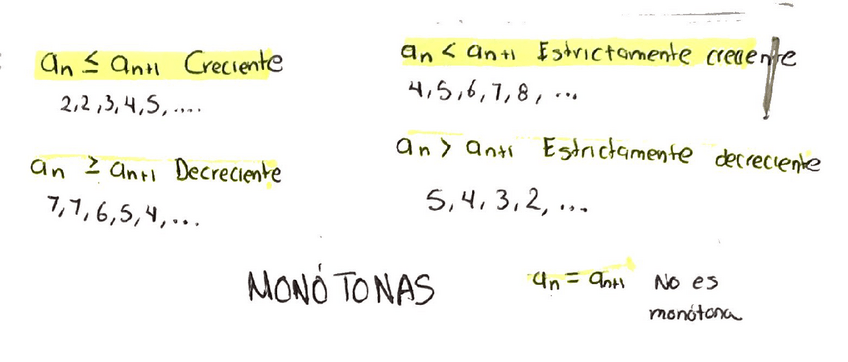 an ≤ an+1 Creciente
2,2,3,4,5,....
an < an+1 Estrictamente creciente
4,5,6,7,8, ...
an ≥ an+1 Decreciente
7,7,6,5,4,...
an > an+1 Estrictamente decreciente
5,4,3,2, ...
MONÓTONAS
an = an+1 No es
monótona